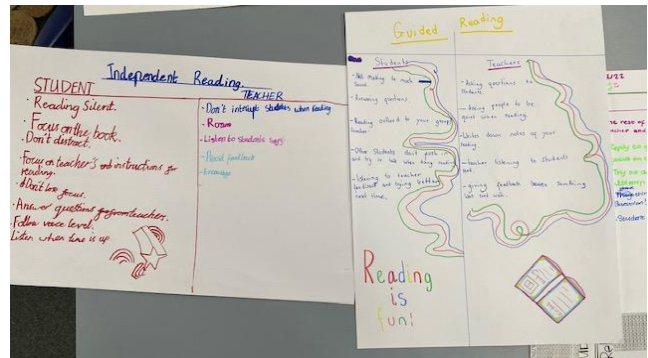 Independent Reading
STUDENT
· Reading Silent.
· Focus on the book.
· Don't distract.
· Focus on teacher's instructions for
reading.
· Don't lose focus.
· Answer questions from teacher.
· Follow voice level.
Listen when time is up
TEACHER
· Don't interrupt students when reading
- Room
- Listen to students
- feedback
- Encourage
Guided Reading
Students
- Not making to much
sound
- Answering questions
- Reading outloud to your group
teacher
- Other students don't
and try to talk when being reading
- listening to teacher
feedback and trying better
next time.
Reading
is
fun!
Teachers
- Asking questions to
students
- Asking people to be
quiet when reading.
- Writes down notes of your
reading
- teacher listening to students
read.
- giving feedback